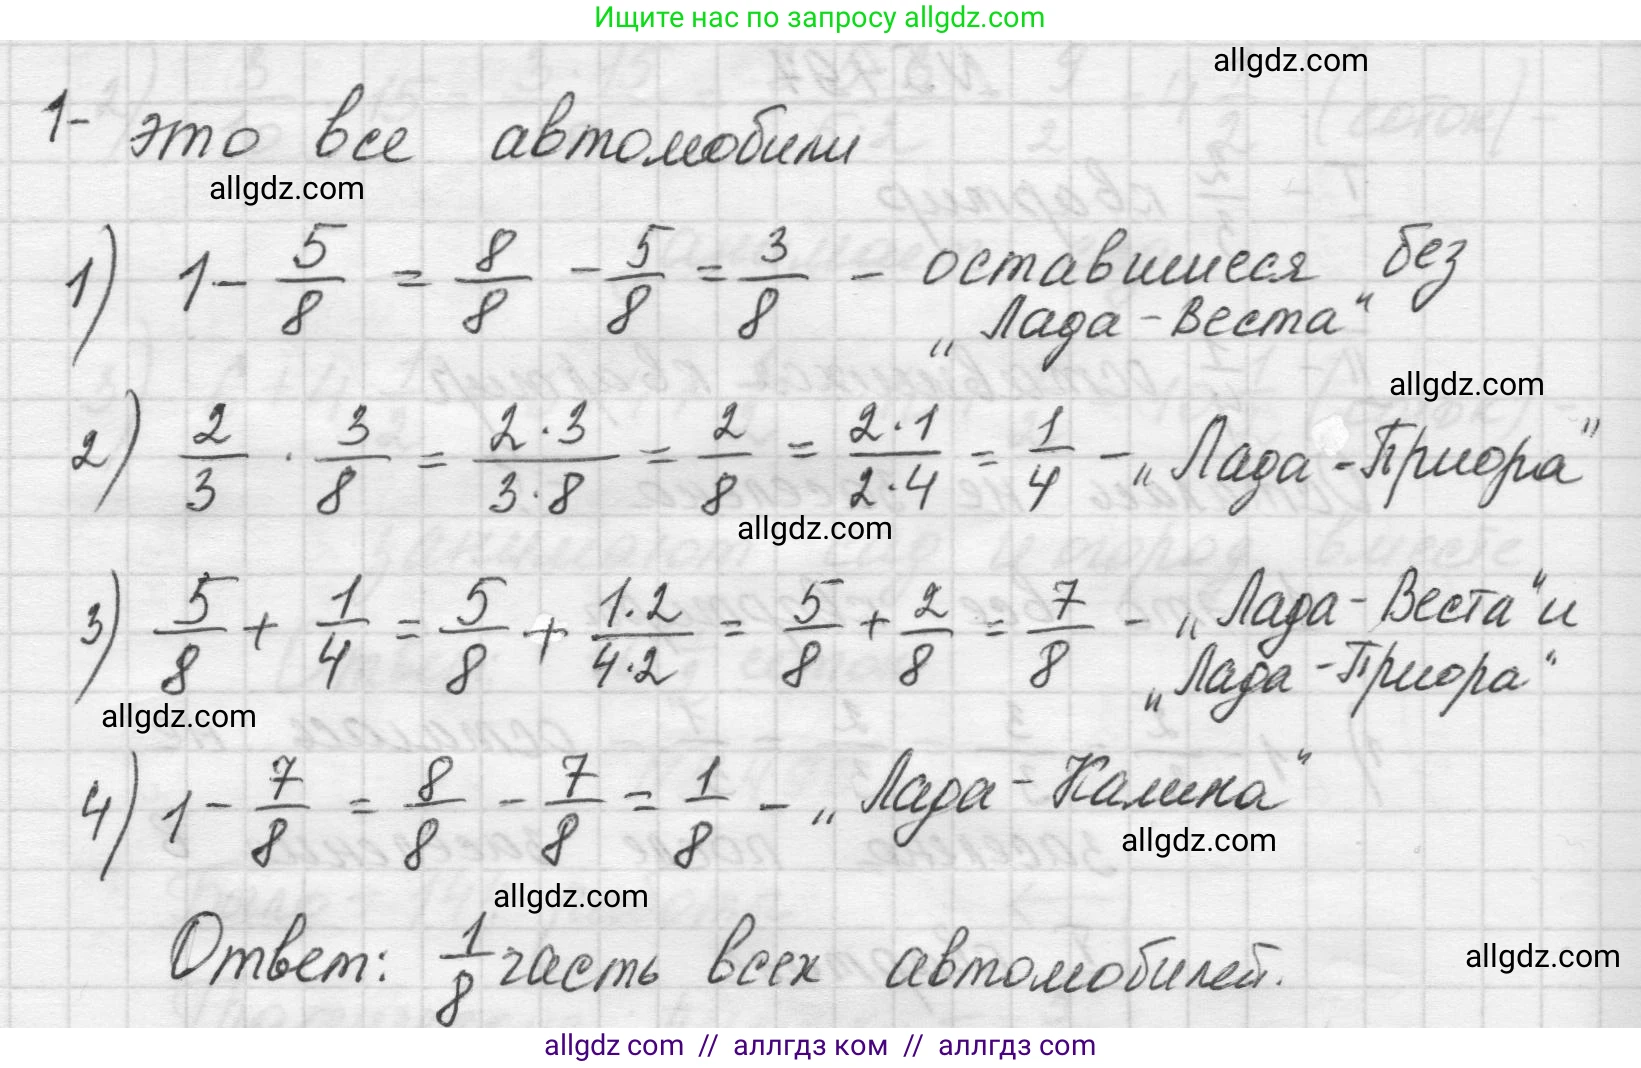 Ищите нас по запросу allgdz.com
allgdz.com
1- это все автомобили
allgdz.com
1) 1 - 5/8 = 8/8 - 5/8 = 3/8 - оставшиеся без
„Лада-Веста“
allgdz.com
2) 2/3 · 3/8 = 2·3/3·8 = 2/8 = 2·1/2·4 = 1/4 - „Лада-Приора“
allgdz.com
3) 5/8 + 1/4 = 5/8 + 1·2/4·2 = 5/8 + 2/8 = 7/8 - „Лада-Веста“ и
„Лада-Приора“
allgdz.com
4) 1 - 7/8 = 8/8 - 7/8 = 1/8 - „Лада-Калина“
allgdz.com
allgdz.com
Ответ: 1/8 часть всех автомобилей.
allgdz.com
allgdz com // аллгдз ком // аллгдз com